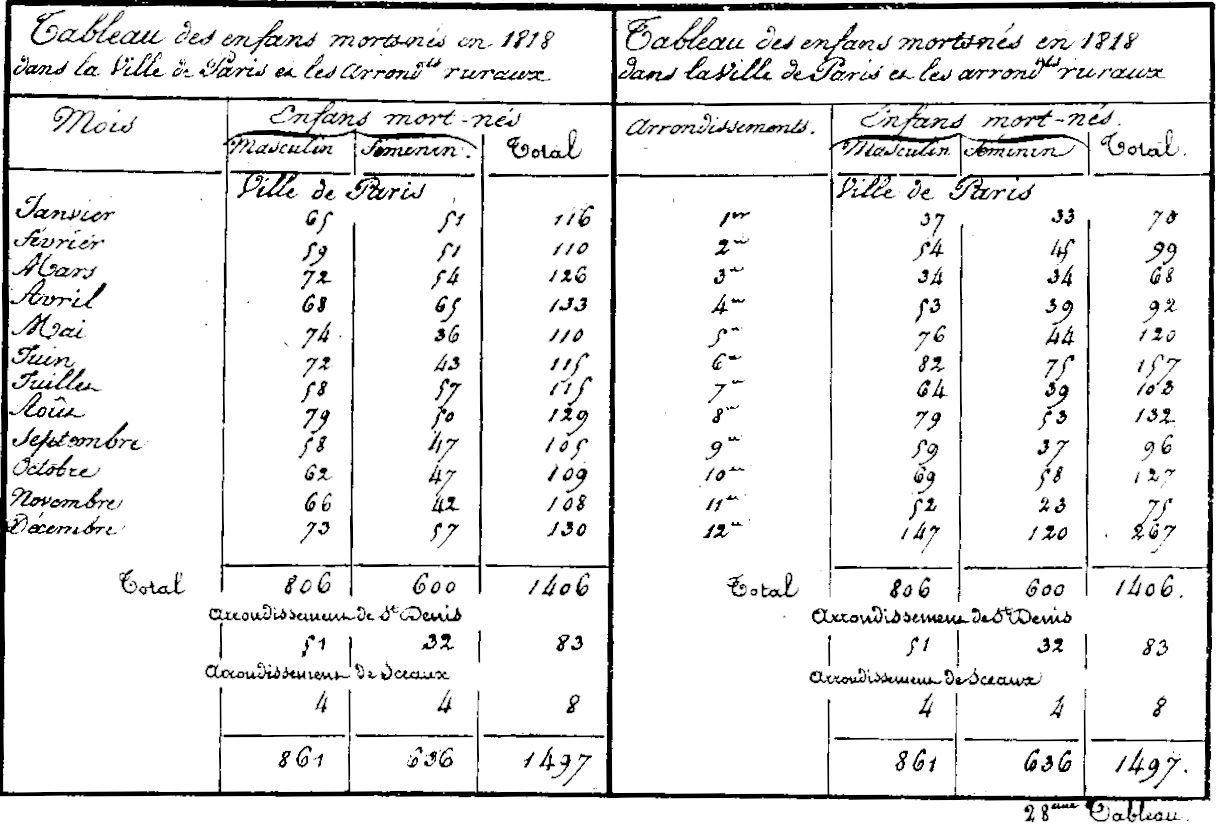 Tableau des enfans morts-nés en 1818
dans la Ville de Paris et les Arrond.ts ruraux
Mois
Enfans mort-nés
Masculin Féminin. Total
Ville de Paris
Janvier 65 51 116
Février 59 51 110
Mars 72 54 126
Avril 68 65 133
Mai 74 36 110
Juin 72 43 115
Juillet 58 57 115
Août 79 50 129
Septembre 58 47 105
Octobre 62 47 109
Novembre 66 42 108
Décembre 73 57 130
Total 806 600 1406
Arrondissement de St Denis
51 32 83
Arrondissement de Sceaux
4 4 8
861 636 1497
Tableau des enfans morts-nés en 1818
dans la Ville de Paris et les arrond.ts ruraux
Arrondissements.
Enfans mort-nés.
Masculin Féminin Total.
Ville de Paris
1er 37 33 70
2me 54 45 99
3me 34 34 68
4me 53 39 92
5me 76 44 120
6me 82 75 157
7me 64 39 103
8me 79 53 132
9me 59 37 96
10me 69 58 127
11me 52 23 75
12me 147 120 267
Total 806 600 1406.
Arrondissement de St Denis
51 32 83
Arrondissement de Sceaux
4 4 8
861 636 1497.
28eme Tableau.